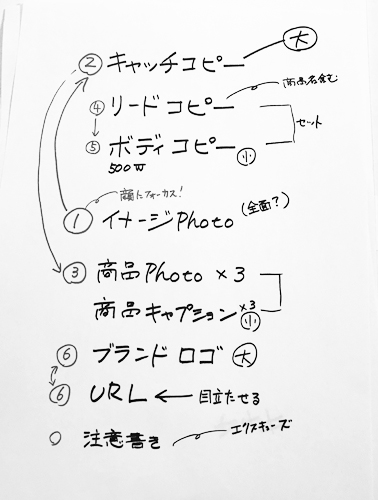 ② キャッチコピー 大
④ リードコピー 商品名含む
⑤ ボディコピー 小 セット
500W
顔にフォーカス!
① イメージPhoto (全面?)
③ 商品Photo × 3
商品キャプション ×3 小
⑥ ブランドロゴ 大
⑥ URL ← 目立たせる
○ 注意書き エクスキューズ